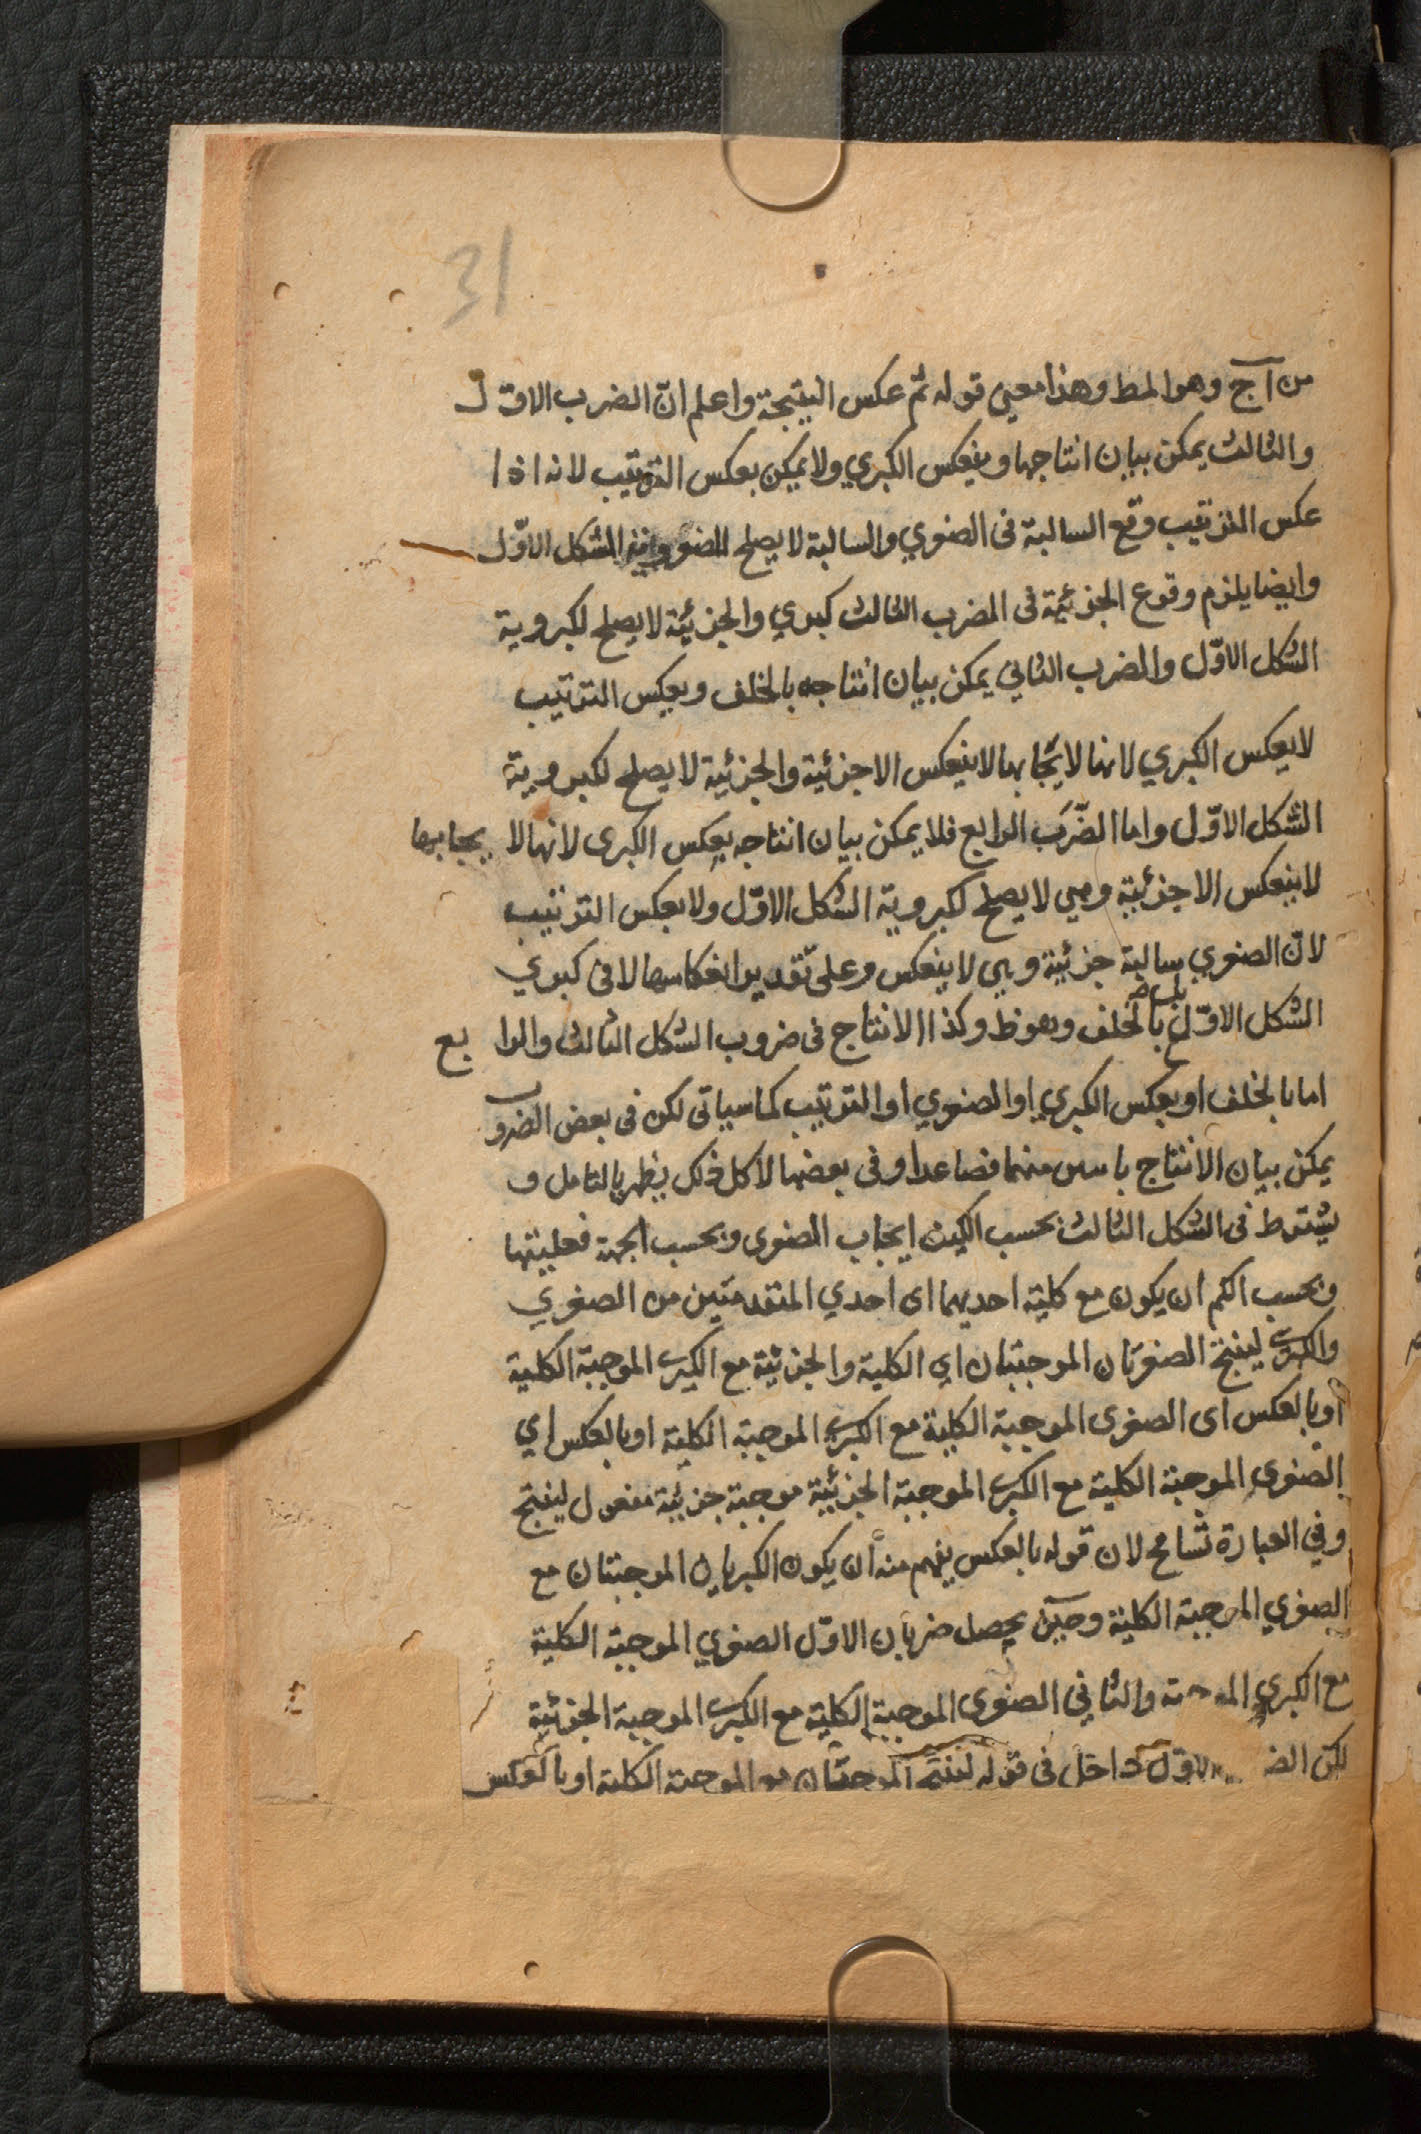 31
من آ ج وهو المط وهذا معنى قوله ثم عكس النتيجة واعلم انّ الضرب الاوّل
والثالث يمكن بيان انتاجها وبعكس الكبري ولا يمكن بعكس الترتيب لانه اذا
عكس الترتيب وقع السالبة فى الصغري والسالبة لا يصلح لصغروية الشكل الاوّل
وايضا يلزم وقوع الجزئية فى الضرب الثالث كبري والجزئية لا يصلح لكبروية
الشكل الاوّل والضرب الثاني يمكن بيان انتاجه بالخلف وبعكس الترتيب
لا بعكس الكبري لانها لايجابها لا ينعكس الا جزئية والجزئية لا يصلح لكبروية
الشكل الاوّل واما الضّرب الرابع فلا يمكن بيان انتاجه بعكس الكبرى لانها لا يجابها
لا ينعكس الا جزئية وهي لا يصلح لكبروية الشكل الاوّل ولا بعكس الترتيب
لانّ الصغري سالبة جزئية وهي لا ينعكس وعلى تقدير انعكاسها لا فى كبري
الشكل الاوّل بل بالخلف وهو ظ وكذا الانتاج فى ضروب الشكل الثالث والرابع
اما بالخلف او بعكس الكبري او الصغري او الترتيب كما سياتى لكن فى بعض الضروب
يمكن بيان الانتاج منهما فصاعدا وفى بعضها لا كل ذلك يظهر بالتامل و
يشترط فى الشكل الثالث بحسب الكيف ايجاب الصغرى وبحسب الجهة فعليتها
وبحسب الكم ان يكون مع كلية احديهما اى احدي المتقدمتين من الصغري
والكبرى لينتج الصغريان الموجبتان اي الكلية والجزئية مع الكبرى الموجبة الكلية
او بالعكس اى الصغرى الموجبة الكلية مع الكبرى الموجبة الكلية او بالعكس اي
الصغرى الموجبة الكلية مع الكبرى الموجبة الجزئية موجبة جزئية مفعول لينتج
وفي العبارة تسامح لان قوله بالعكس يفهم منه ان يكون الكبريان الموجبتان مع
الصغري الموجبة الكلية وحينئذ يحصل ضربان الاوّل الصغري الموجبة الكلية
مع الكبري والثاني الصغرى الموجبة الكلية مع الكبرى الموجبة الجزئية
لكن الاوّل داخل فى قوله لينتج الموجبتان مع الموجبة الكلية او بالعكس